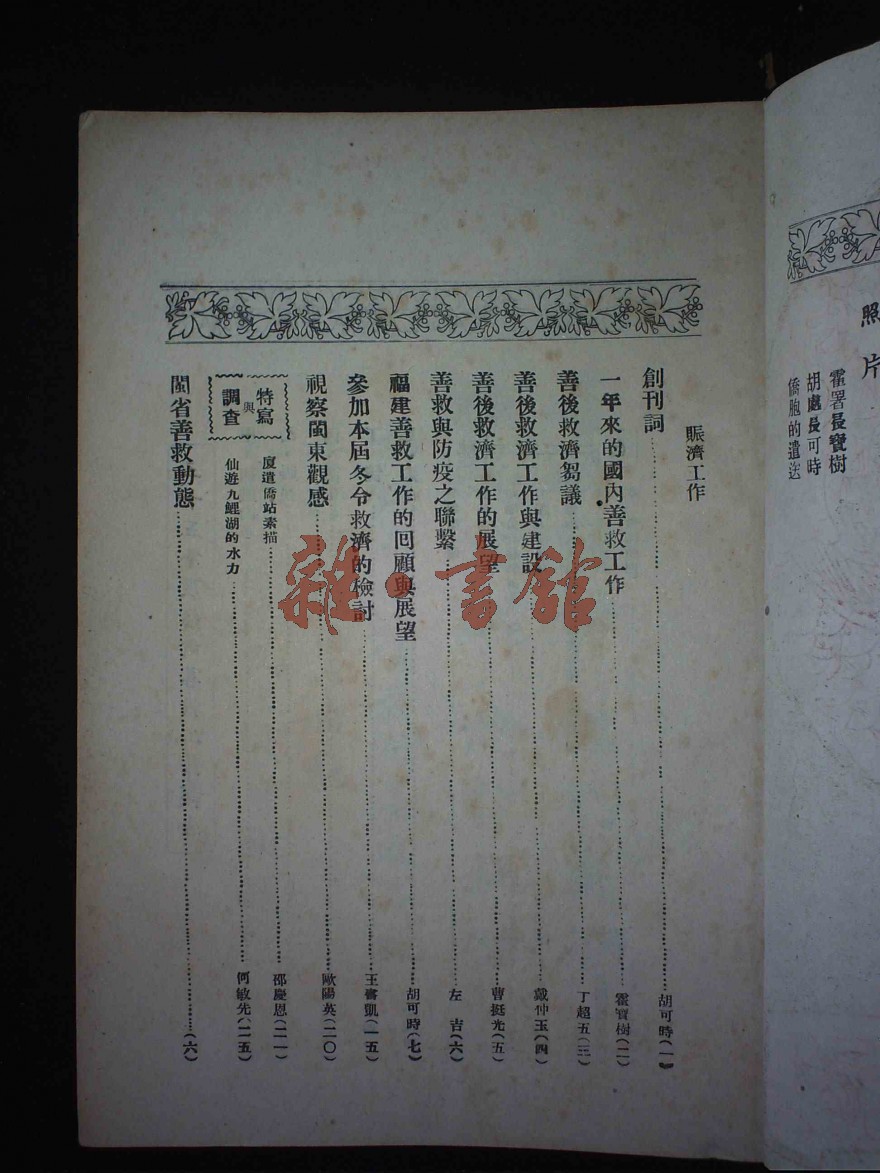 照片
霍署長寶樹
胡處長可時
僑胞的遣送
賑濟工作
創刊詞……胡可時(一)
一年來的國內善救工作……霍寶樹(二)
善後救濟芻議……丁超五(三)
善後救濟工作與建設……戴仲玉(四)
善後救濟工作的展望……曹挺光(五)
善救與防疫之聯繫……左吉(六)
福建善救工作的回顧與展望……胡可時(七)
參加本屆冬令救濟的檢討……王書凱(一五)
視察閩東觀感……歐陽英(二〇)
特寫與調查
廈遣僑站素描……邵慶恩(二一)
仙遊九鯉湖的水力……何敏先(二五)
閩省善救動態……(六)
雜·書館